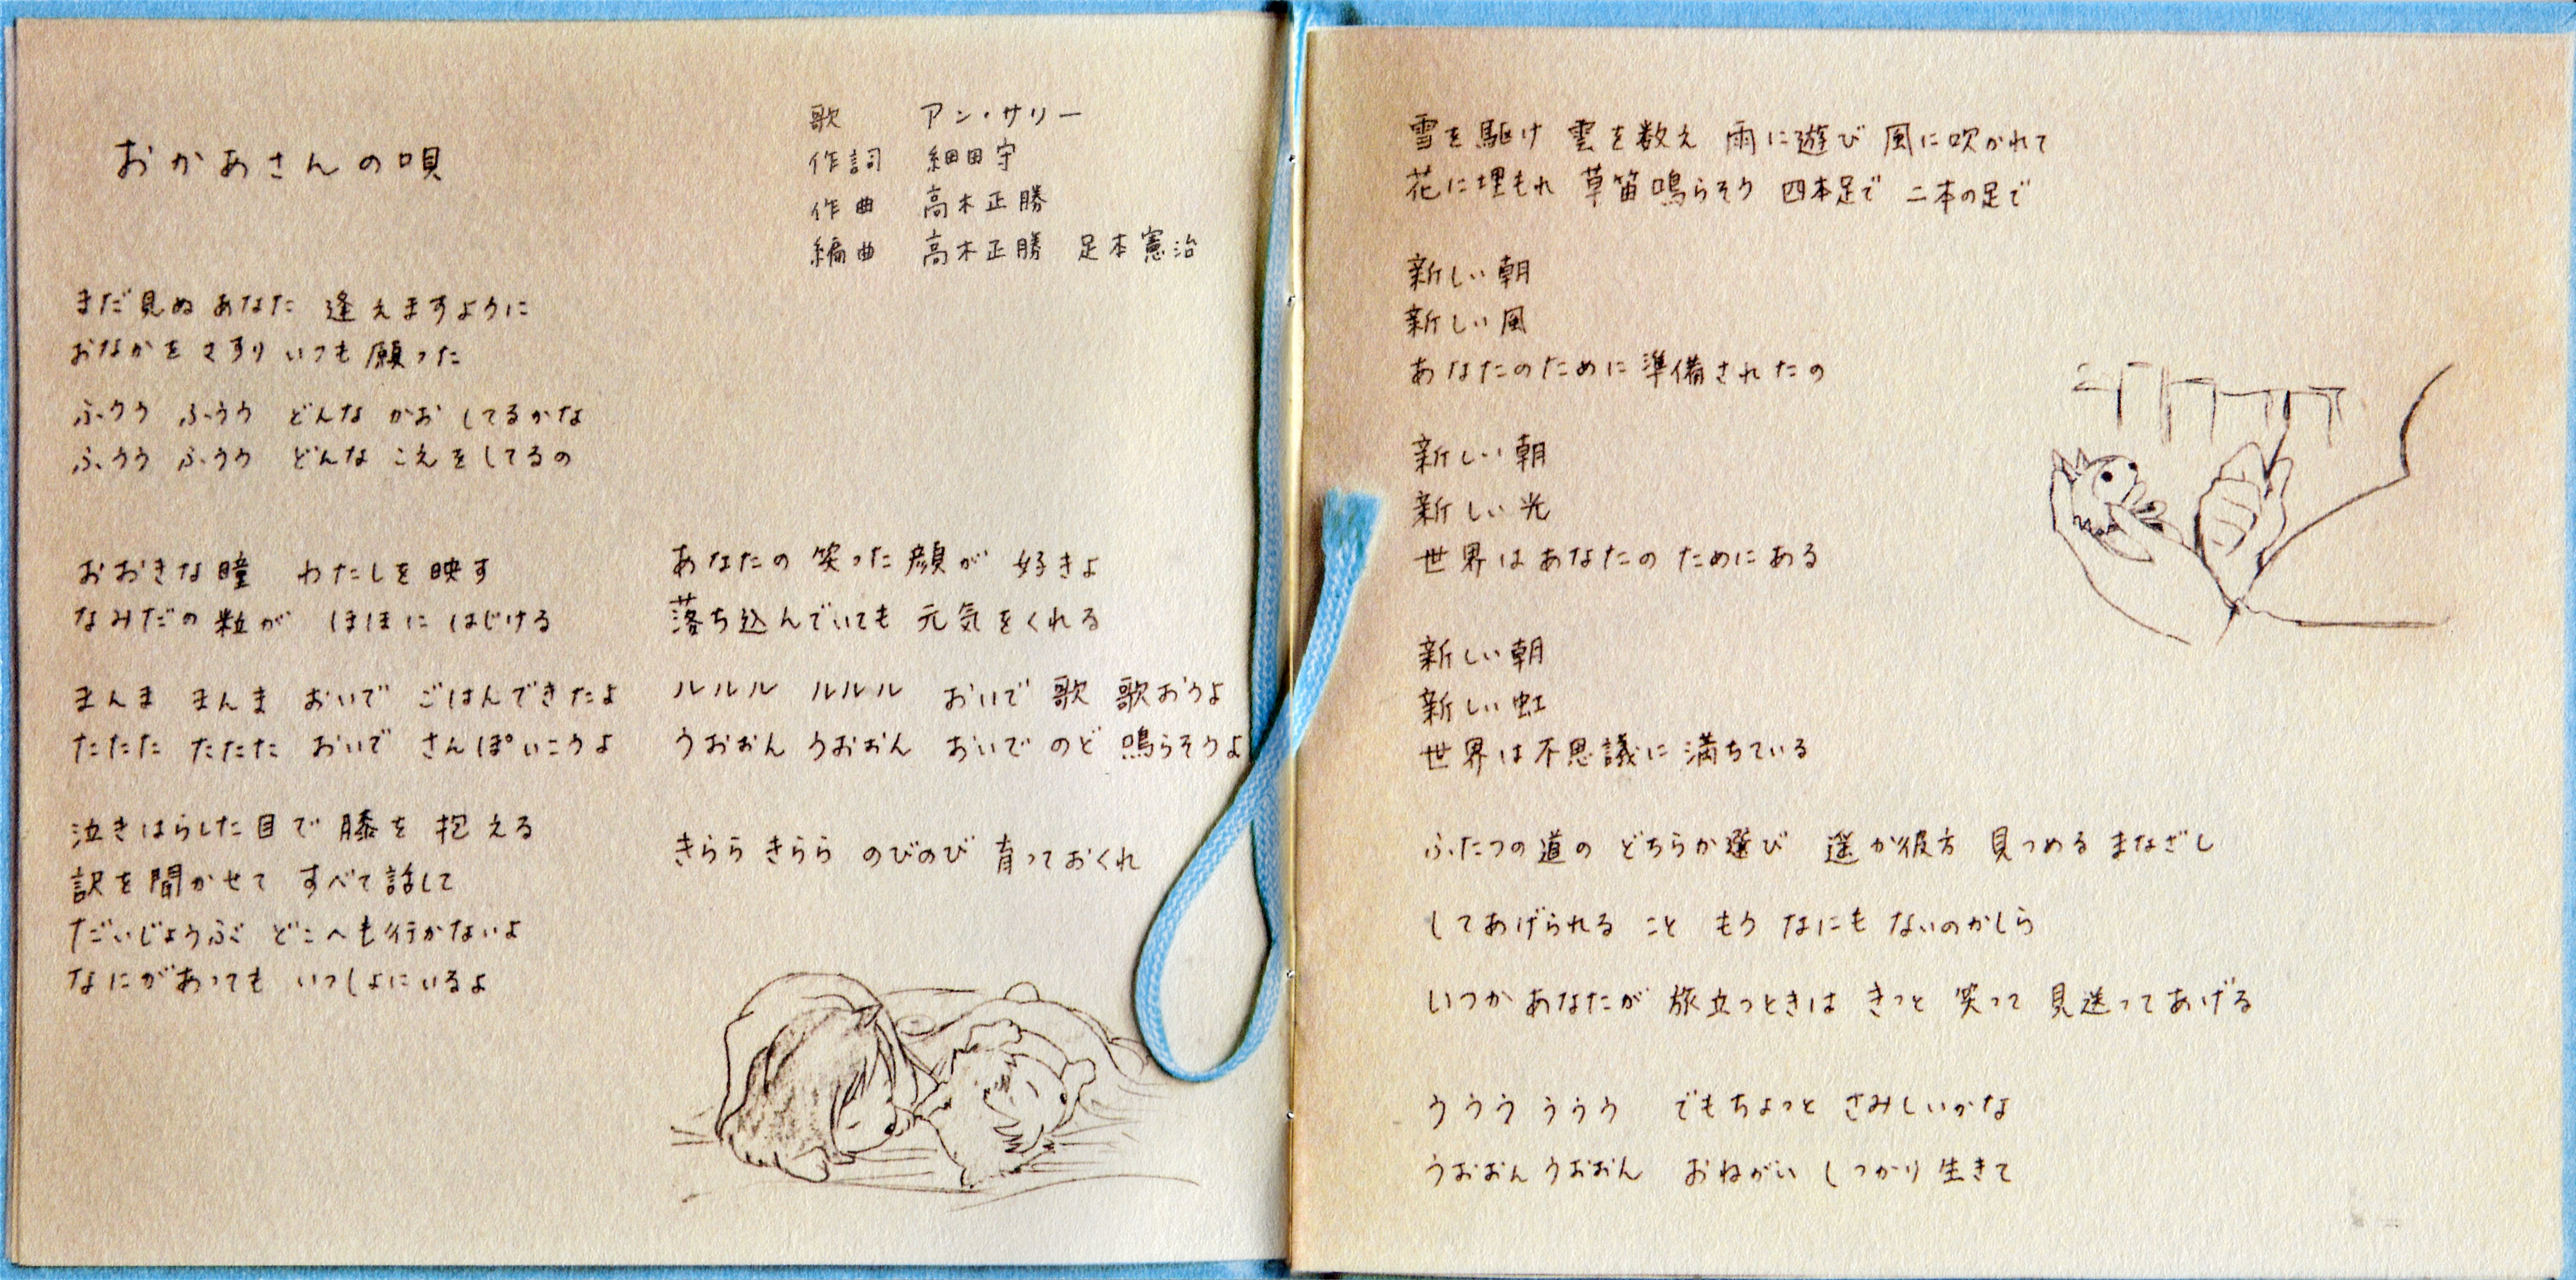 おかあさんの唄
歌　アン・サリー
作詞　細田守
作曲　高木正勝
編曲　高木正勝　足本憲治
まだ見ぬ あなた 逢えますように
おなかを さすり いつも 願った
ふうう ふうう どんな かお してるかな
ふうう ふうう どんな こえをしてるの
おおきな瞳 わたしを映す
なみだの粒が ほほに はじける
まんま まんま おいで ごはんできたよ
たたた たたた おいで さんぽいこうよ
泣きはらした目で 膝を 抱える
訳を聞かせて すべて話して
だいじょうぶ どこへも行かないよ
なにがあっても いっしょにいるよ
あなたの 笑った顔が 好きよ
落ち込んでいても 元気をくれる
ルルル ルルル おいで 歌 歌おうよ
うおおん うおおん おいで のど 鳴らそうよ
きらら きらら のびのび 育っておくれ
雪を駆け 雲を数え 雨に遊び 風に吹かれて
花に埋もれ 草笛鳴らそう 四本足で 二本の足で
新しい朝
新しい風
あなたのために準備されたの
新しい朝
新しい光
世界はあなたの ためにある
新しい朝
新しい虹
世界は不思議に 満ちている
ふたつの道の どちらか選び 遥か彼方 見つめる まなざし
してあげられる こと もう なにも ないのかしら
いつか あなたが 旅立つときは きっと 笑って 見送ってあげる
ううう ううう でもちょっと さみしいかな
うおおん うおおん おねがい しっかり 生きて